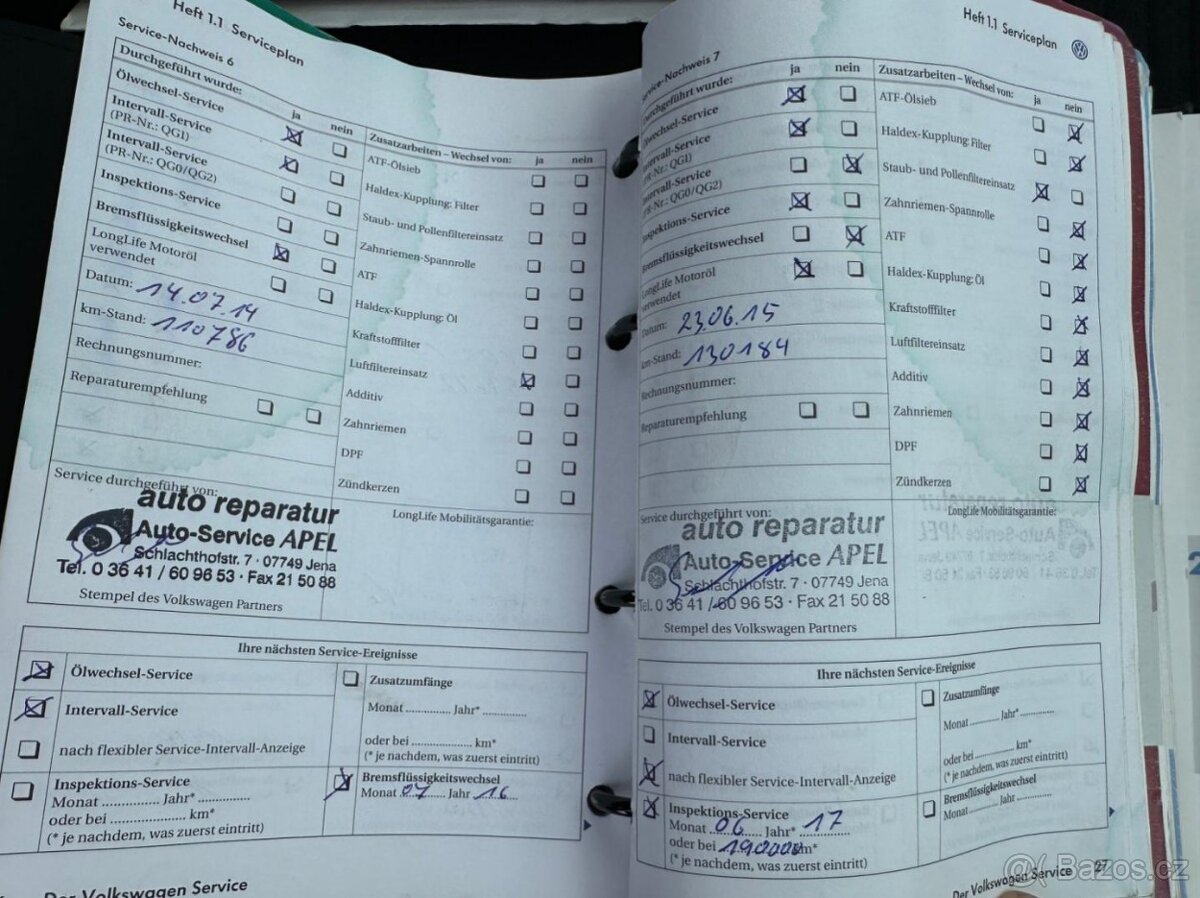 Heft 1.1 Serviceplan
Service-Nachweis 6
Durchgeführt wurde:
ja nein
Ölwechsel-Service
Intervall-Service
(PR-Nr.: QG1)
Intervall-Service
(PR-Nr.: QG0/QG2)
Inspektions-Service
Bremsflüssigkeitswechsel
LongLife Motoröl
verwendet
Datum: 14.07.14
km-Stand: 110786
Rechnungsnummer:
Reparaturempfehlung
Zusatzarbeiten – Wechsel von: ja nein
ATF-Ölsieb
Haldex-Kupplung: Filter
Staub- und Pollenfiltereinsatz
Zahnriemen-Spannrolle
ATF
Haldex-Kupplung: Öl
Kraftstofffilter
Luftfiltereinsatz
Additiv
Zahnriemen
DPF
Zündkerzen
Service durchgeführt von:
auto reparatur
Auto-Service APEL
Schlachthofstr. 7 · 07749 Jena
Tel. 0 36 41 / 60 96 53 · Fax 21 50 88
Stempel des Volkswagen Partners
LongLife Mobilitätsgarantie:
Ihre nächsten Service-Ereignisse
Ölwechsel-Service
Intervall-Service
nach flexibler Service-Intervall-Anzeige
Inspektions-Service
Monat .............. Jahr* ..............
oder bei .................... km*
(* je nachdem, was zuerst eintritt)
Zusatzumfänge
Monat ............ Jahr* ............
oder bei ................ km*
(* je nachdem, was zuerst eintritt)
Bremsflüssigkeitswechsel
Monat 07 Jahr 16
Der Volkswagen Service
Heft 1.1 Serviceplan
Service-Nachweis 7
Durchgeführt wurde: ja nein
Ölwechsel-Service
Intervall-Service
(PR-Nr.: QG1)
Intervall-Service
(PR-Nr.: QG0/QG2)
Inspektions-Service
Bremsflüssigkeitswechsel
LongLife Motoröl
verwendet
Datum: 23.06.15
km-Stand: 130184
Rechnungsnummer:
Reparaturempfehlung
Zusatzarbeiten – Wechsel von: ja nein
ATF-Ölsieb
Haldex-Kupplung: Filter
Staub- und Pollenfiltereinsatz
Zahnriemen-Spannrolle
ATF
Haldex-Kupplung: Öl
Kraftstofffilter
Luftfiltereinsatz
Additiv
Zahnriemen
DPF
Zündkerzen
Service durchgeführt von:
auto reparatur
Auto-Service APEL
Schlachthofstr. 7 · 07749 Jena
Tel. 0 36 41 / 60 96 53 · Fax 21 50 88
Stempel des Volkswagen Partners
LongLife Mobilitätsgarantie:
Ihre nächsten Service-Ereignisse
Ölwechsel-Service
Intervall-Service
nach flexibler Service-Intervall-Anzeige
Inspektions-Service
Monat 06 Jahr* 17
oder bei 190000 km*
(* je nachdem, was zuerst eintritt)
Zusatzumfänge
Monat ............ Jahr* ............
oder bei ................ km*
(* je nachdem, was zuerst eintritt)
Bremsflüssigkeitswechsel
Monat ............ Jahr ............
Der Volkswagen Service 27
Bazos.cz